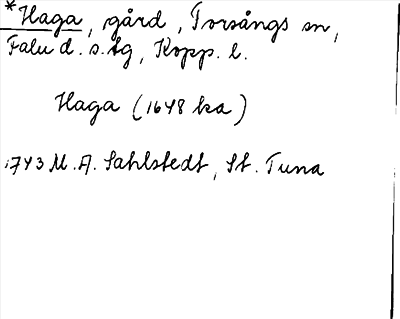 *Haga, gård, Torsångs sn,
Falu d. s. tg, Kopp. l.
Haga (1648 ka)
1743 M. A. Sahlstedt, St. Tuna